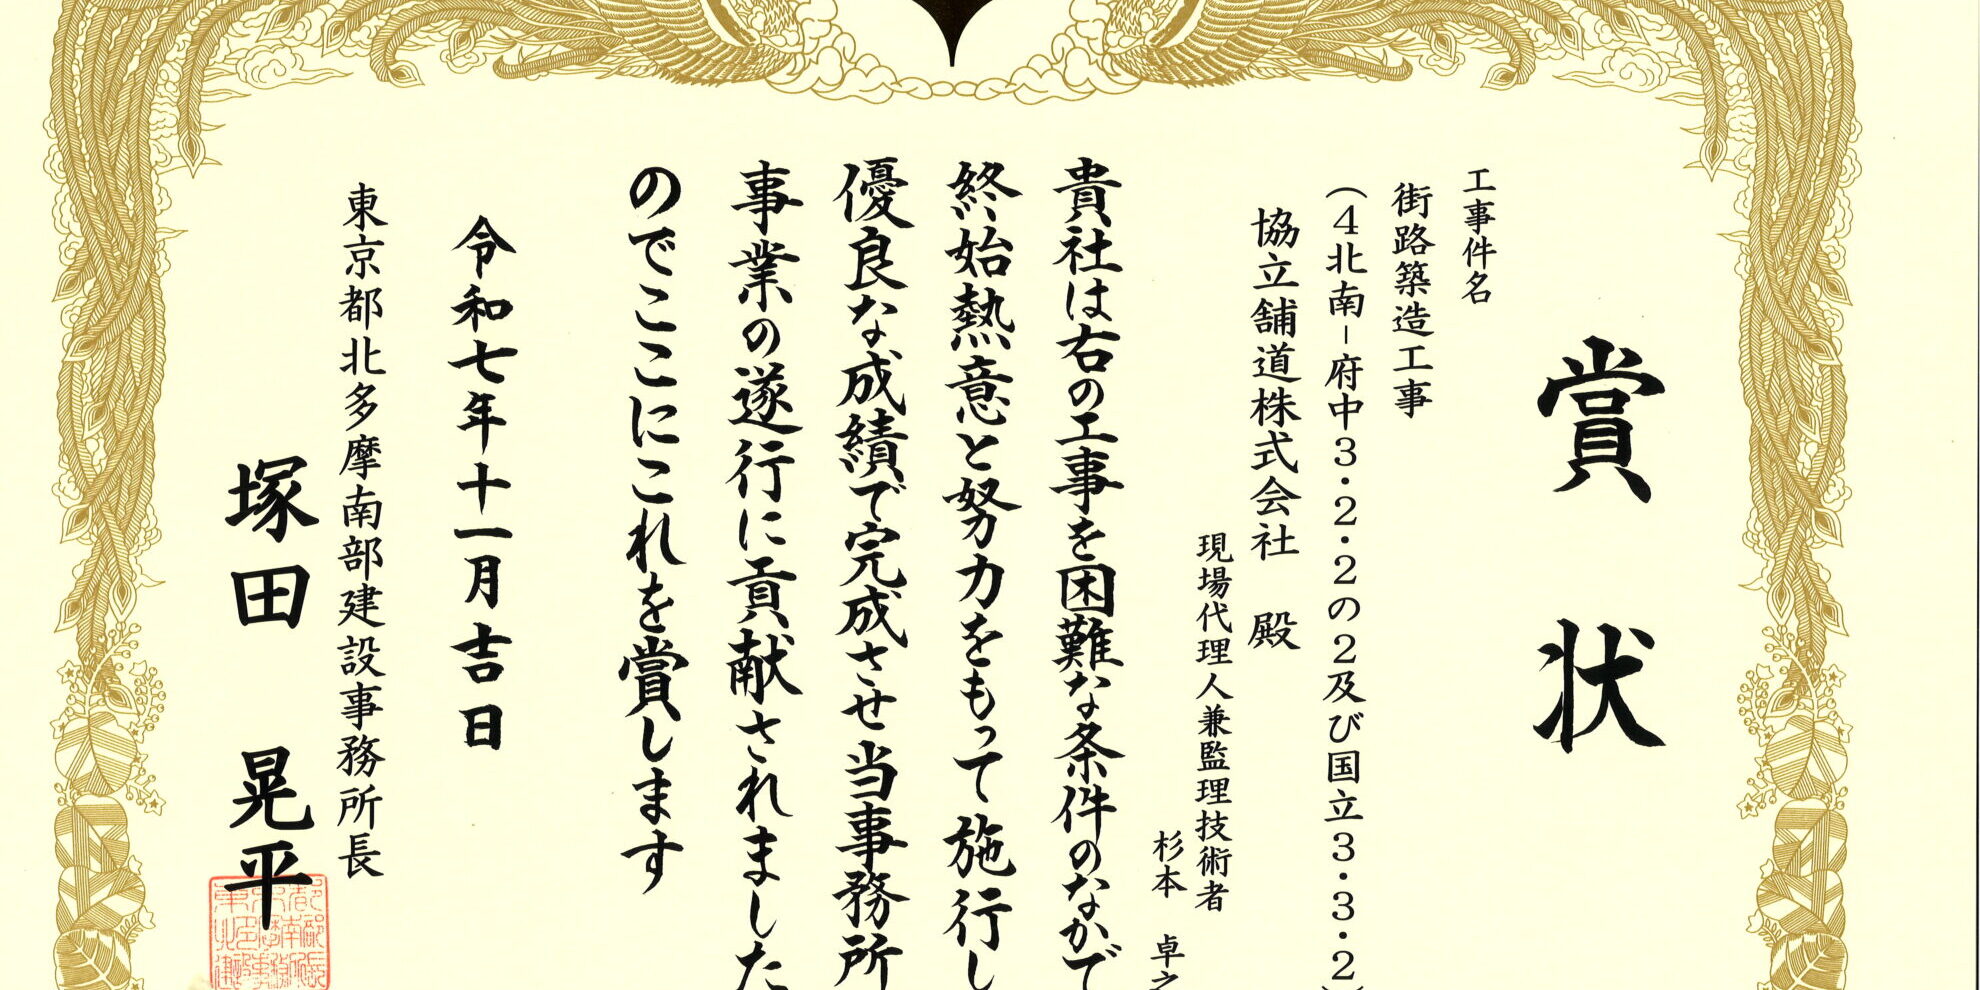 賞状
工事件名
街路築造工事
（４北南−府中３・２・２の２及び国立３・３・２）
協立舗道株式会社　殿
現場代理人兼監理技術者
杉本　卓之
貴社は右の工事を困難な条件のなかで
終始熱意と努力をもって施行し
優良な成績で完成させ当事務所
事業の遂行に貢献されました
のでここにこれを賞します
令和七年十一月吉日
東京都北多摩南部建設事務所長
塚田　晃平